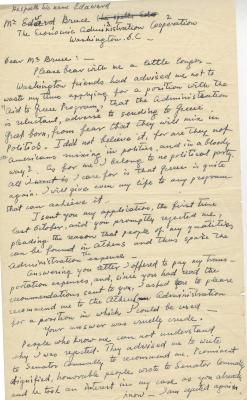 Respells his name Edaward
Mr Edward Bruce
The Economic Administration Cooperation
Washington D.C —
Dear Mr Bruce: —
Please bear with me a little longer —
Washington friends had advised me not to
waste my time applying for a position with the
"Aid to Greece Program", that the Administration
is reluctant, adverse to sending to Greece
Greek born, from fear that they will mix in
Politics. I did not believe it, for are they not
Americans mixing in politics, and in a bloody
way?. As for me I belong to no political party
all I want is I care for is that Greece is quiet
again. I will give even my life to any program
that can achieve it.
I sent you my application, the first time
last October, and you promptly rejected me,
pleading the reason that people of my qualities
can be found in Athens and thus spare the
Administration the expenses
Answering you I offered to pay my trans-
portation expenses and, since you had read the
recommendations sent to you, I asked you to please
recommend me to the Athens Administration
for a position in which I could be used —
Your answer was cruelly crude.
People who know me can not understand
why I was rejected. They advised me to write
to Senator Connally to recommend me. Prominent
dignified, honorable people wrote to Senator Connally
and he took an interest in my case as you already
know — I am again